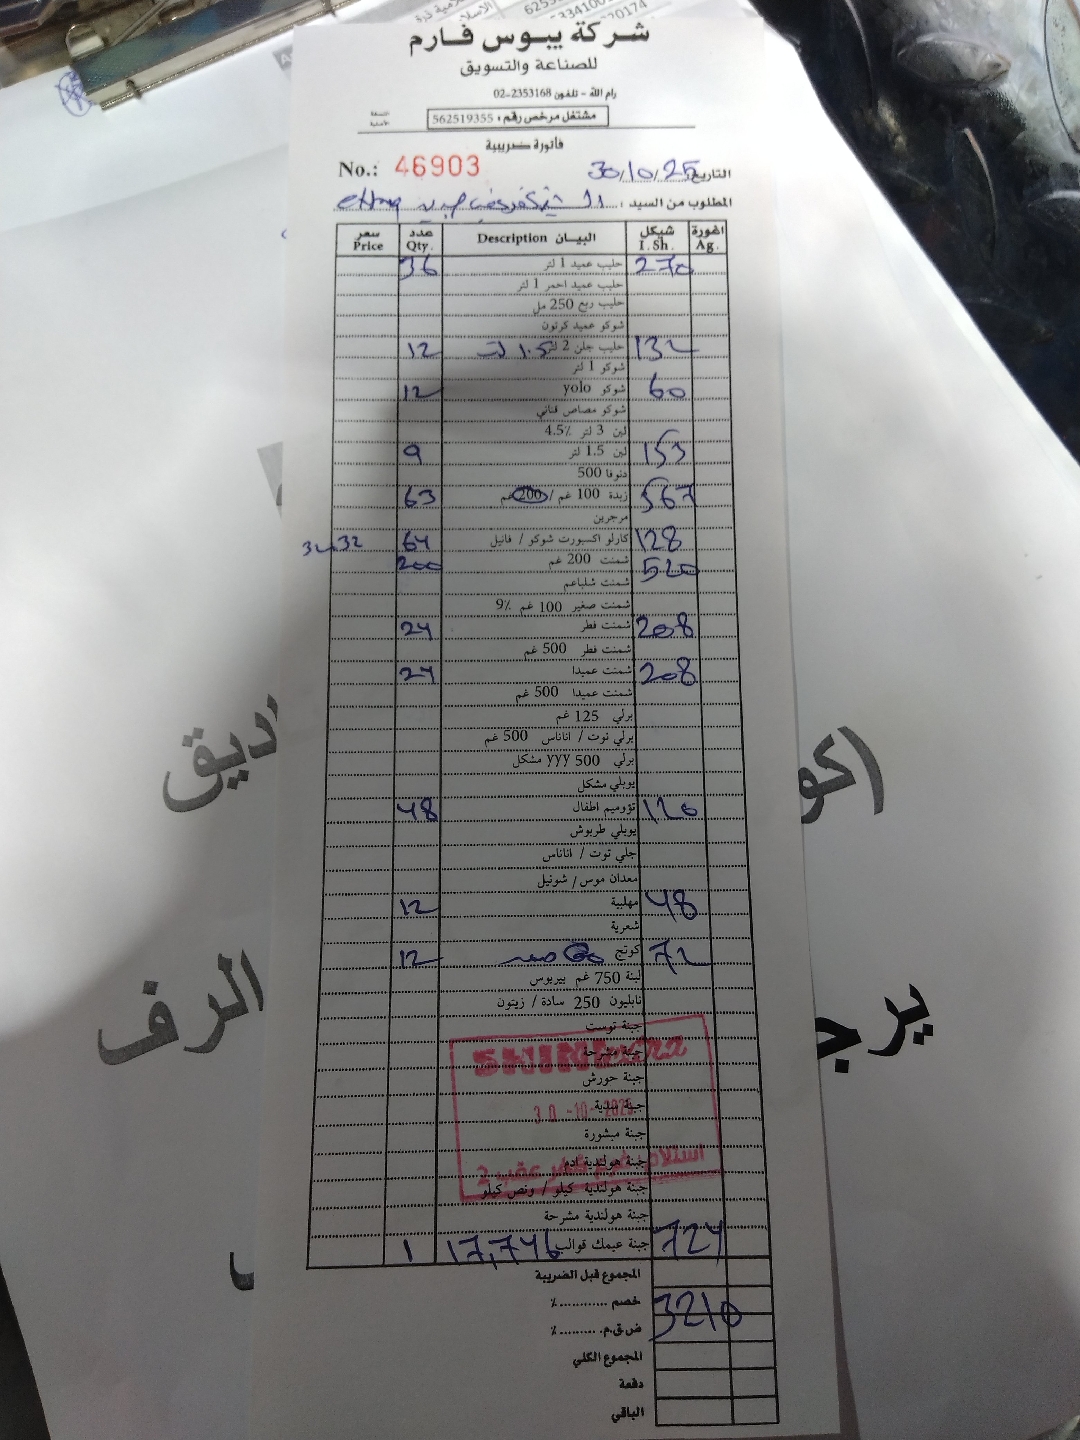 شركة يبوس فارم
للصناعة والتسويق
رام الله - تلفون 02-2353168
مشتغل مرخص رقم: 562519355
النسخة الأصلية
فاتورة ضريبية
No.: 46903
التاريخ 30/10/25
المطلوب من السيد:
سعر Price عدد Qty. البيان Description شيكل I.Sh. اغورة Ag.
36 حليب عميد 1 لتر 270
حليب عميد احمر 1 لتر
حليب ربع 250 مل
شوكو عميد كرتون
12 حليب جلن 2 لتر 1.5 لتر 132
شوكو 1 لتر
12 شوكو yolo 60
شوكو مصاص قناني
لبن 3 لتر 4.5٪
9 لبن 1.5 لتر 153
دنوفا 500
63 زبدة 100 غم / 200 غم 567
مرجرين
32 64 كارلو اكسبورت شوكو / فانيل 128
200 شمنت 200 غم 520
شمنت شلباعم
شمنت صغير 100 غم 9٪
24 شمنت فطر 208
شمنت فطر 500 غم
24 شمنت عميدا 208
شمنت عميدا 500 غم
برلي 125 غم
برلي توت / اناناس 500 غم
برلي 500 yyy مشكل
يوبلي مشكل
48 تؤوميم اطفال 120
يوبلي طربوش
جلي توت / اناناس
معدان موس / شونيل
12 مهلبية 48
شعرية
12 كوتج 72
لبنة 750 غم بيريوس
نابليون 250 سادة / زيتون
جبنة توست
جبنة مشرحة
جبنة حورش
جبنة
جبنة مبشورة
جبنة هولندية ادم
جبنة هولندية كيلو / ونص كيلو
جبنة هولندية مشرحة
1 جبنة عيمك قوالب 17,746 724
30-10-2025
المجموع قبل الضريبة
خصم ............ ٪ 3210
ض.ق.م. ......... ٪
المجموع الكلي
دفعة
الباقي
الرف